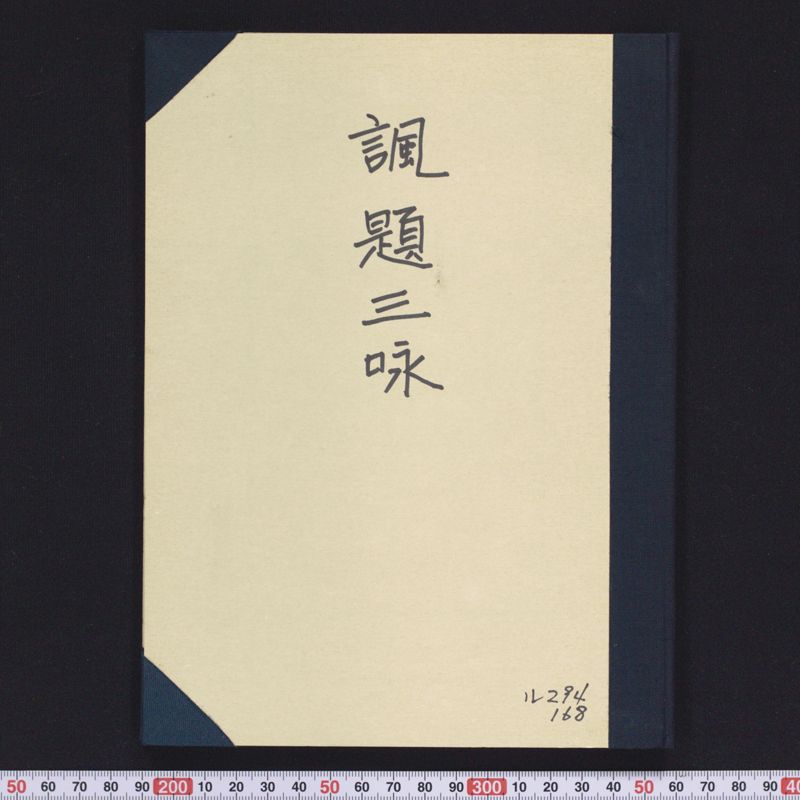 諷題三咏
ル294
168
50 60 70 80 90 200 10 20 30 40 50 60 70 80 90 300 10 20 30 40 50 60 70 80 90